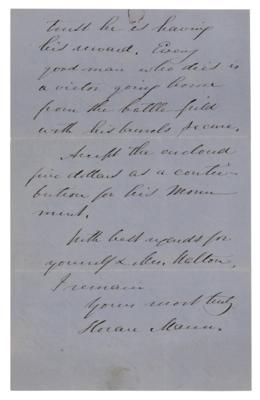 trust he is having
his reward. Every
good man who dies is
a victor going home
from the battle field
with his laurels secure.
Accept the enclosed
five dollars as a contri-
bution for his Monu-
ment.
With best regards for
yourself & Mrs. Walton,
I remain
Yours most truly
Horace Mann.